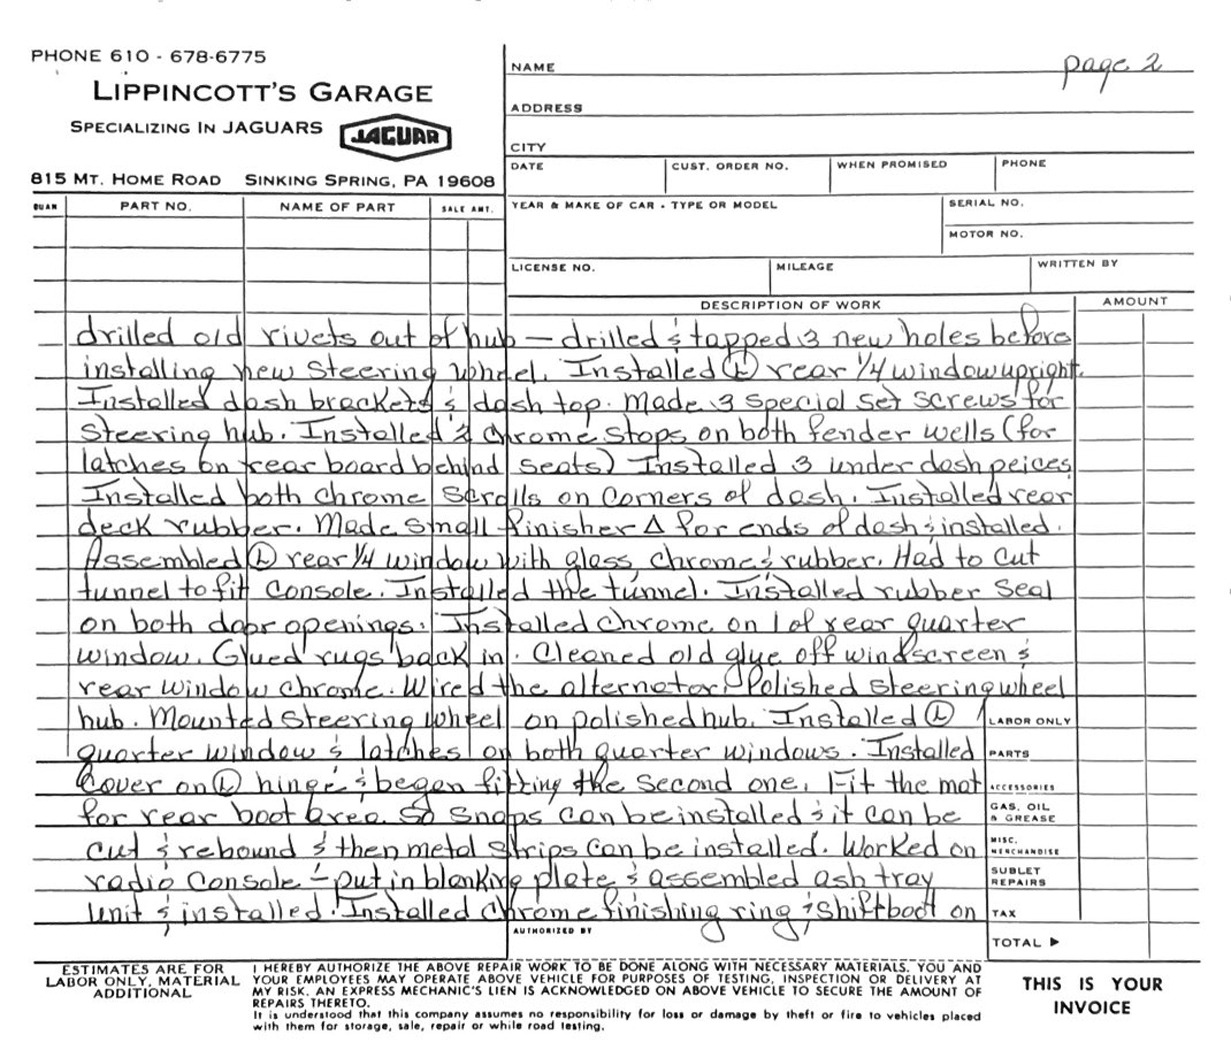 PHONE 610 - 678-6775
LIPPINCOTT'S GARAGE
SPECIALIZING IN JAGUARS
JAGUAR
815 MT. HOME ROAD SINKING SPRING, PA 19608
NAME
page 2
ADDRESS
CITY
DATE
CUST. ORDER NO.
WHEN PROMISED
PHONE
QUAN
PART NO.
NAME OF PART
SALE AMT.
YEAR & MAKE OF CAR - TYPE OR MODEL
SERIAL NO.
MOTOR NO.
LICENSE NO.
MILEAGE
WRITTEN BY
DESCRIPTION OF WORK
AMOUNT
drilled old rivets out of hub — drilled & tapped 3 new holes before
installing new Steering wheel. Installed Ⓛ rear 1/4 window upright.
Installed dash brackets & dash top. Made 3 special set screws for
Steering hub. Installed 2 chrome stops on both fender wells (for
latches on rear board behind seats) Installed 3 under dash peices
Installed both chrome scrolls on corners of dash. Installed rear
deck rubber. Made small finisher Δ for ends of dash & installed.
Assembled Ⓛ rear 1/4 window with glass, chrome & rubber. Had to cut
tunnel to fit console. Installed the tunnel. Installed rubber seal
on both door openings. Installed chrome on 1 of rear quarter
window. Glued rugs back in. Cleaned old glue off windscreen &
rear window chrome. Wired the alternator. Polished steering wheel
hub. Mounted steering wheel on polished hub. Installed Ⓛ
quarter window & latches on both quarter windows. Installed
cover on Ⓛ hinge & began fitting the second one. Fit the mat
for rear boot area so snaps can be installed & it can be
cut & rebound & then metal strips can be installed. Worked on
radio console - put in blanking plate & assembled ash tray
unit & installed. Installed chrome finishing ring & shift boot on
LABOR ONLY
PARTS
ACCESSORIES
GAS, OIL
& GREASE
MISC.
MERCHANDISE
SUBLET
REPAIRS
TAX
TOTAL ►
AUTHORIZED BY
ESTIMATES ARE FOR
LABOR ONLY, MATERIAL
ADDITIONAL
I HEREBY AUTHORIZE THE ABOVE REPAIR WORK TO BE DONE ALONG WITH NECESSARY MATERIALS. YOU AND
YOUR EMPLOYEES MAY OPERATE ABOVE VEHICLE FOR PURPOSES OF TESTING, INSPECTION OR DELIVERY AT
MY RISK. AN EXPRESS MECHANIC'S LIEN IS ACKNOWLEDGED ON ABOVE VEHICLE TO SECURE THE AMOUNT OF
REPAIRS THERETO.
It is understood that this company assumes no responsibility for loss or damage by theft or fire to vehicles placed
with them for storage, sale, repair or while road testing.
THIS IS YOUR
INVOICE